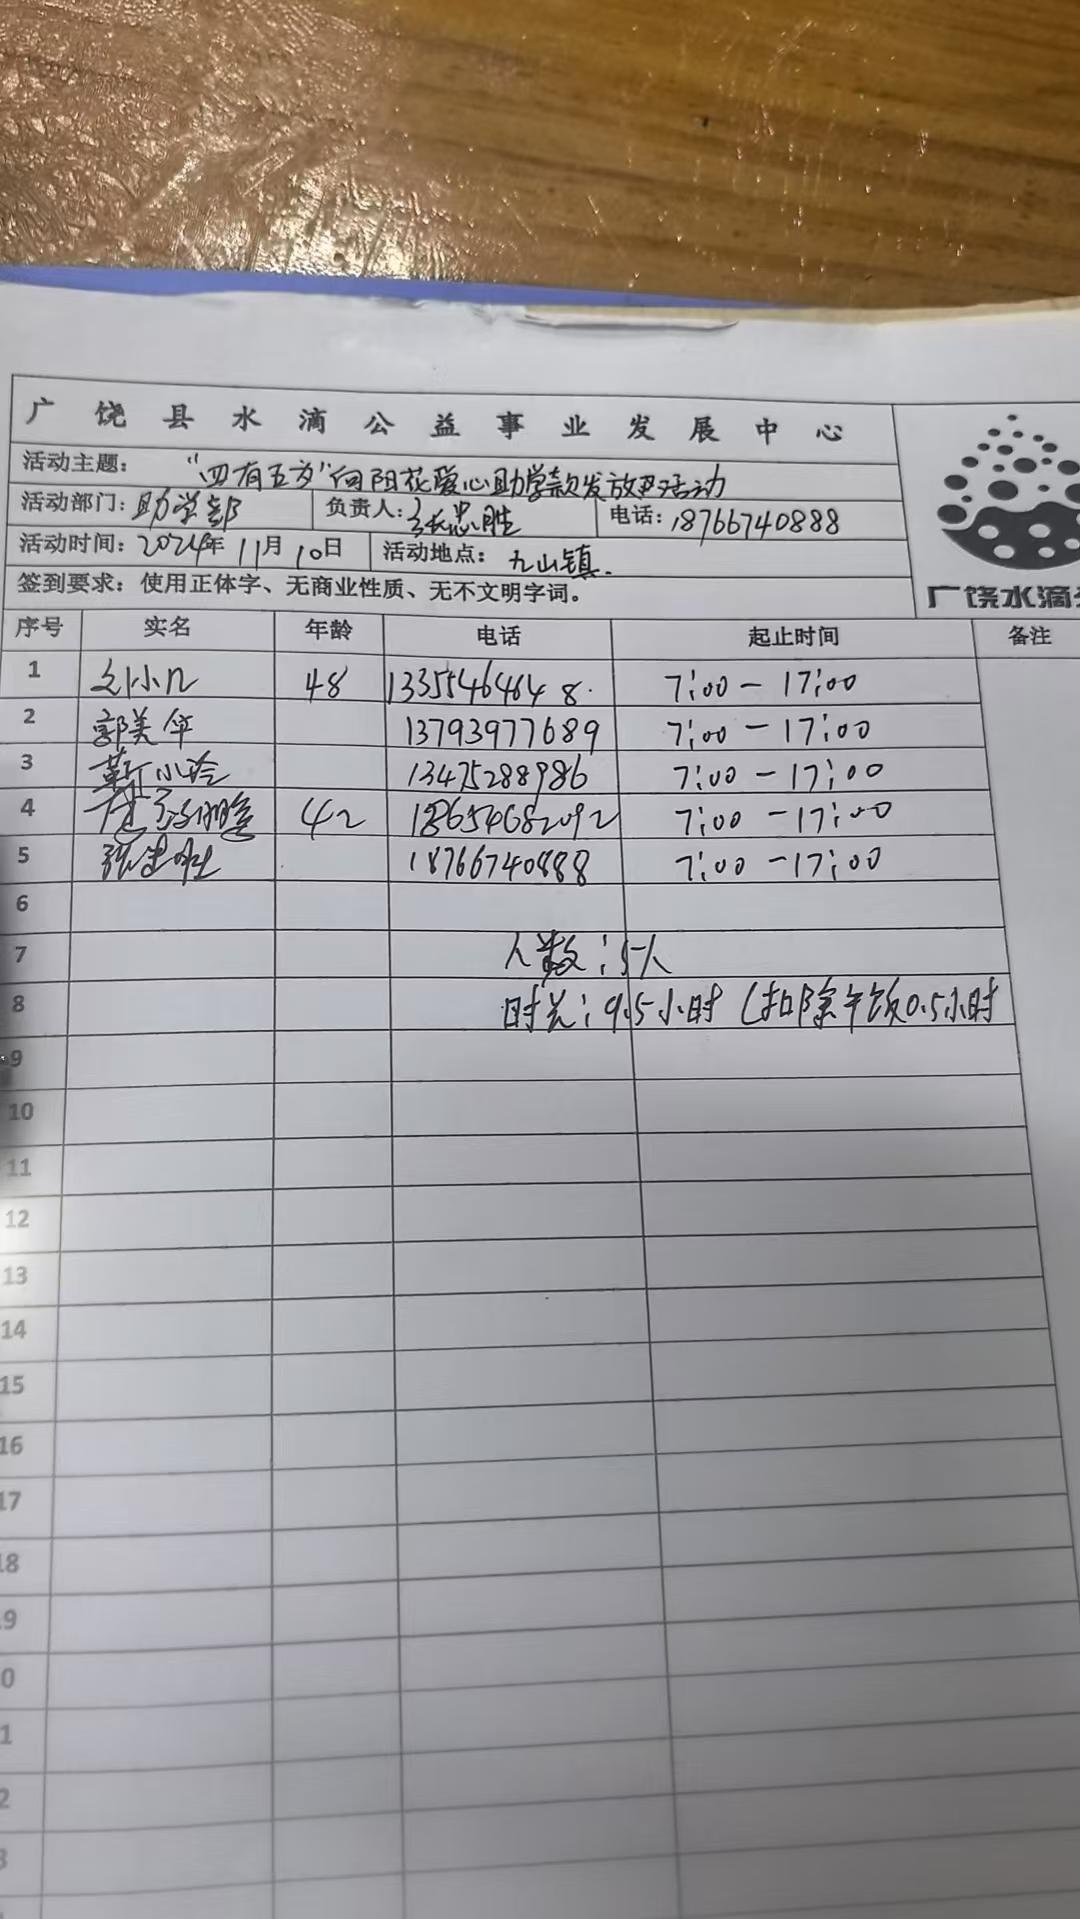 广饶县水滴公益事业发展中心
活动主题："四有五方"向阳花爱心助学款发放日活动
活动部门：助学部 负责人：张忠胜 电话：18766740888
活动时间：2024年11月10日 活动地点：九山镇.
签到要求：使用正体字、无商业性质、无不文明字词。
广饶水滴
序号 实名 年龄 电话 起止时间 备注
1 刘小几 48 13355464648. 7:00-17:00
2 郭美华 13793977689 7:00-17:00
3 靳小玲 13475288986 7:00-17:00
4 42 18654682092 7:00-17:00
5 张忠胜 18766740888 7:00-17:00
6
7 人数：5人
8 时长：9.5小时（扣除午饭0.5小时
9
10
11
12
13
14
15
16
17
18
19
0
1
2
3